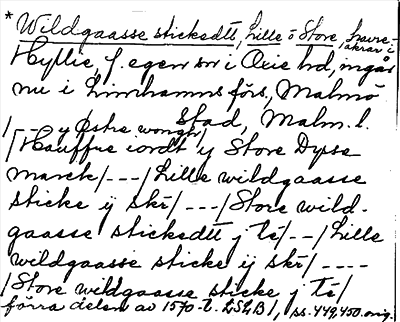 * Wildgaasse stickedtt, Lille o Store, havre-
åkrar i
Hyllie, f. egen sn i Oxie hd, ingår
nu i Limhamns förs, Malmö
Stad, Malm. l.
/ - - - y Østre wongh/
/ Hauffre iordt y Store Dysse
marck/---/Lille wildgaasse
sticke ij skr/---/Store wild-
gaasse stickedtt j tr/--/Lille
wildgaasse sticke ij skr/----
/Store wildgaasse sticke j tr/
förra delen av 1570-t. LSLB1, ss. 449, 450. orig.